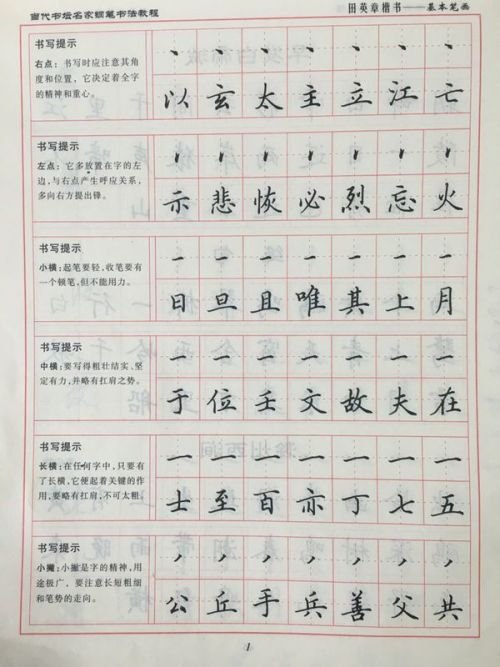 当代书坛名家钢笔书法教程
田英章楷书——基本笔画
书写提示
右点：书写时应注意其角
度和位置，它决定着全字
的精神和重心。
以玄太主立江亡
书写提示
左点：它多放置在字的左
边，与右点产生呼应关系，
多向右方提出锋。
示悲恢必烈忘火
书写提示
小横：起笔要轻，收笔要有
一个顿笔，但不能用力。
日旦且唯其上月
书写提示
中横：要写得粗壮结实、坚
定有力，并略有扛肩之势。
于位壬文故夫在
书写提示
长横：在任何字中，只要有
了长横，它便起着关键的作
用，要略有扛肩，不可太粗。
士至百亦丁七五
书写提示
小撇：小撇是字的精神，用
途极广、要注意长短粗细
和笔势的走向。
公丘手兵善父共
1